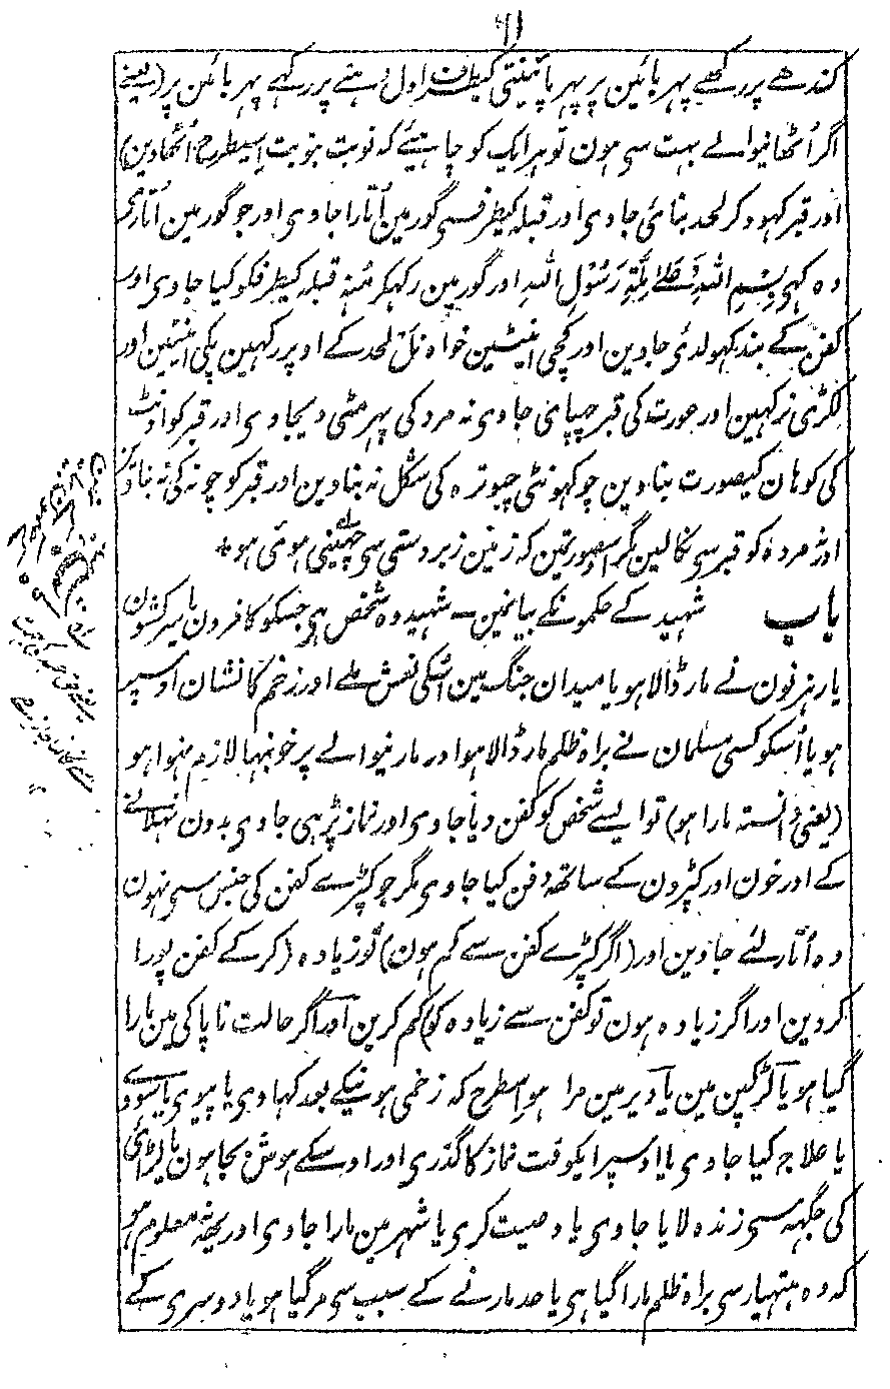 ٦١
کندھے پر رکھے پہر بائین پر پہر پائینتی کیطرف اول دہنے پر رکہے پہر بائین پر (یعنے
اگر اُٹھانیوالے بہت سی ہون تو ہر ایک کو چاہئیے کہ نوبت بنوبت اسیطرح اُٹھاوین)
اور قبر کہود کر لحد بنائی جاوی اور قبلہ کیطرفسی گور مین اُتارا جاوی اور جو گور مین اُتاری
وہ کہی بِسْمِ اللّٰہِ وَعَلٰے مِلَّۃِ رَسُوْلِ اللّٰہِ اور گور مین رکہکر مُنہ قبلہ کیطرفکو کیا جاوی اور
کفن کے بند کہولدئی جاوین اور کچی اینٹین خواہ نَلْ لحد کے اوپر رکہین پکی اینٹین اور
لکڑی نرکہین اور عورت کی قبر چہپائی جاوی نہ مرد کی پہر مٹی دیجاوی اور قبر کو اونٹ
کی کوہان کیصورت بنادین چوکہونٹی چبوترہ کی شکل نہ بناوین اور قبر کو چونہ کی نہ بناوین
اور نہ مردہ کو قبر سی نکالین مگر اوسصورتمین کہ زمین زبردستی سی چہینی ہوئی ہو٭
باب شہید کے حکمونکے بیانمین۔ شہید وہ شخص ہی جسکو کافرون یا سرکشون
یا رہزنون نے مار ڈالا ہو یا میدان جنگ مین اُسکی نعش ملے اور زخم کا نشان اوسپر
ہو یا اُسکو کسی مسلمان نے براہ ظلم مار ڈالا ہو اور مارنیوالے پر خونبہا لازم نہوا ہو
(یعنی دانستہ مارا ہو) تو ایسے شخص کو کفن دیا جاوی اور نماز پڑہی جاوی بدون نہلانے
کے اور خون اور کپڑون کے ساتھہ دفن کیا جاوی مگر جو کپڑے کفن کی جنس سی نہون
وہ اُتار لئے جاوین اور (اگر کپڑے کفن سے کم ہون) تو زیادہ (کر کے کفن پورا
کر دین اور اگر زیادہ ہون تو کفن سے زیادہ کو) کم کرین اور اگر حالت ناپاکی مین مارا
گیا ہو یا لڑکپن مین یا دیر مین مرا ہو اسطرح کہ زخمی ہونیکے بعد کہاوی یا پیوی یا سووے
یا علاج کیا جاوی یا اوسپر ایکوقت نماز کا گذری اور اوسکے ہوش بجا ہون یا لڑائی
کی جگہہ سی زندہ لایا جاوی یا وصیت کری یا شہر مین مارا جاوی اور یہ نہ معلوم ہو
کہ وہ ہتہیار سی براہ ظلم مارا گیا ہی یا حد مارنے کے سبب سی مر گیا ہو یا دوسری کے